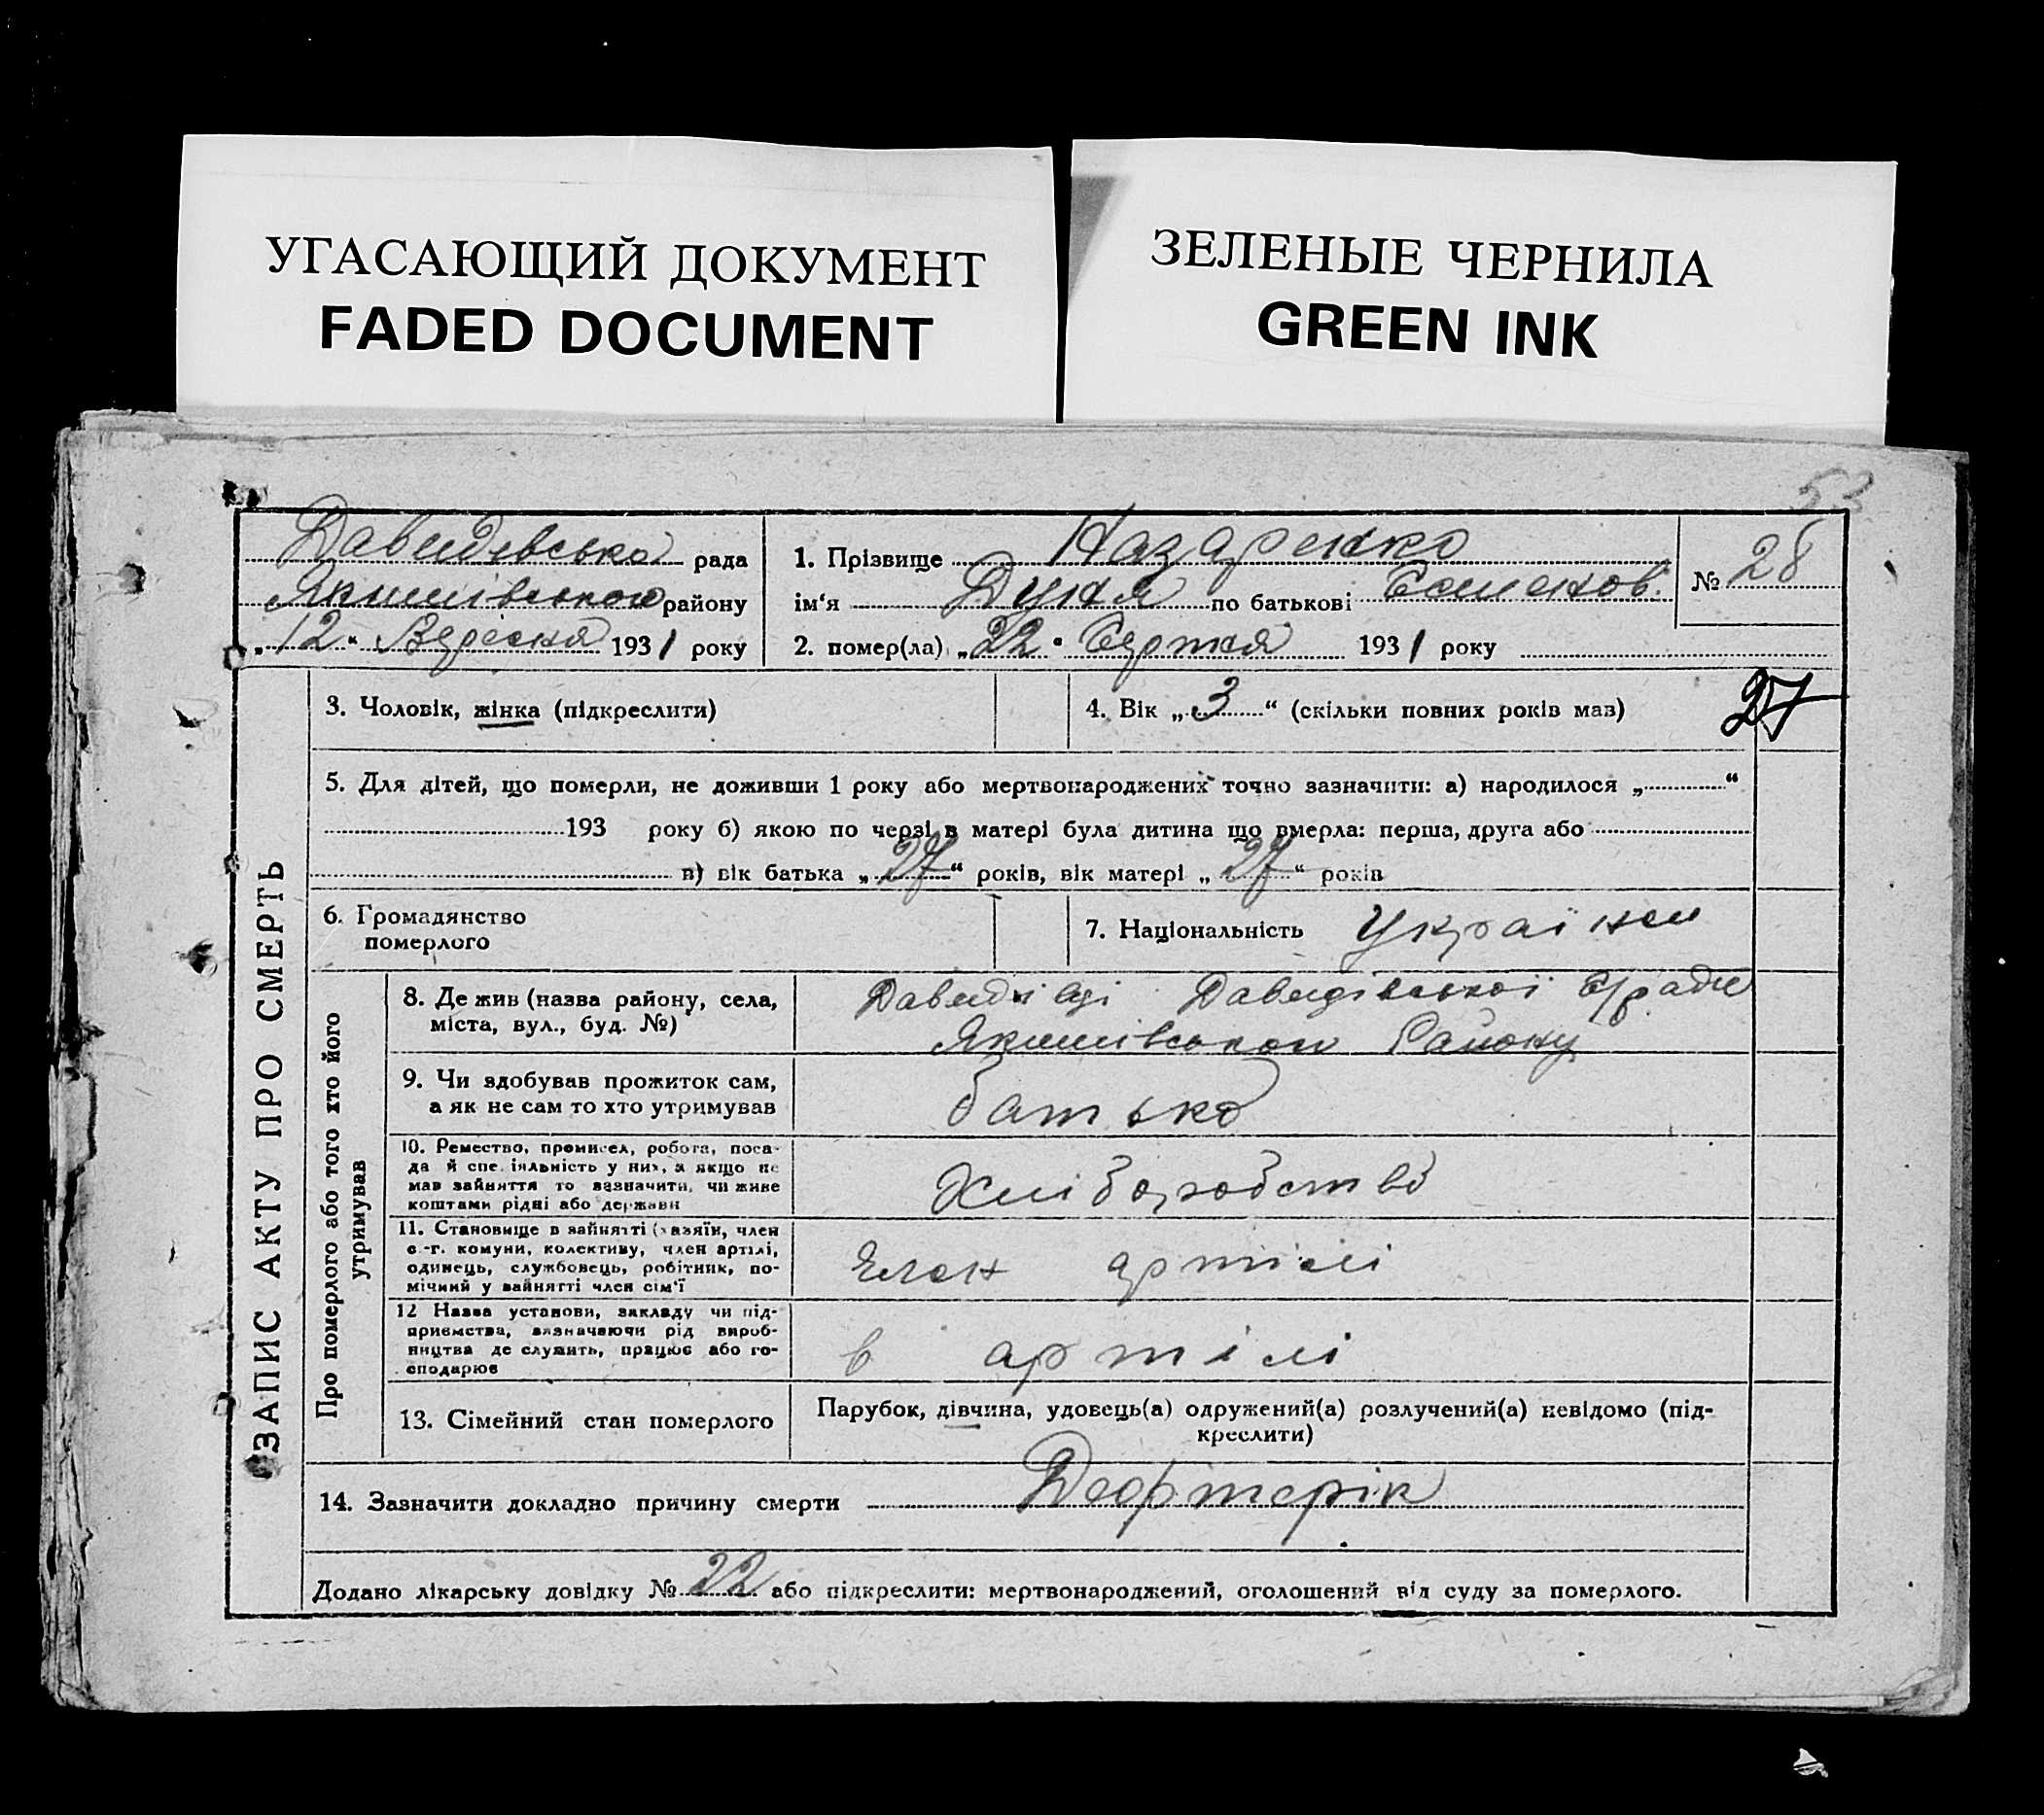 УГАСАЮЩИЙ ДОКУМЕНТ
FADED DOCUMENT
ЗЕЛЕНЫЕ ЧЕРНИЛА
GREEN INK
53
Давидівська рада
Якимівського району
„12“ Вересня 1931 року
1. Прізвище Назаренко
ім‘я Дуня по батькові Семенов.
2. помер(ла) „22“ Серпня 1931 року
№ 28
3. Чоловік, жінка (підкреслити)
4. Вік „3“ (скільки повних років мав)
27
5. Для дітей, що померли, не доживши 1 року або мертвонароджених точно зазначити: а) народилося „ “
193 року б) якою по черзі в матері була дитина що вмерла: перша, друга або
в) вік батька „27“ років, вік матері „27“ років
6. Громадянство
померлого
7. Національність Україн
ЗАПИС АКТУ ПРО СМЕРТЬ
Про померлого або того хто його
утримував
8. Де жив (назва району, села,
міста, вул., буд. №)
Давидівці Давидівської С/ради
Якимівського Району
9. Чи здобував прожиток сам,
а як не сам то хто утримував
батько
10. Ремество, промисел, робота, поса-
да й спеціяльність у них, а якщо не
мав зайняття то зазначити, чи живе
коштами рідні або держави
Хліборобство
11. Становище в зайнятті (хазяїн, член
с.-г. комуни, колективу, член артілі,
одинець, службовець, робітник, по-
мічний у зайнятті член сім‘ї
Член артілі
12 Назва установи, закладу чи під-
приємства, зазначаючи рід вироб-
ництва де служить, працює або го-
сподарює
в артілі
13. Сімейний стан померлого
Парубок, дівчина, удовець(а) одружений(а) розлучений(а) невідомо (під-
креслити)
14. Зазначити докладно причину смерти Деофтерік
Додано лікарську довідку № 22 або підкреслити: мертвонароджений, оголошений від суду за померлого.